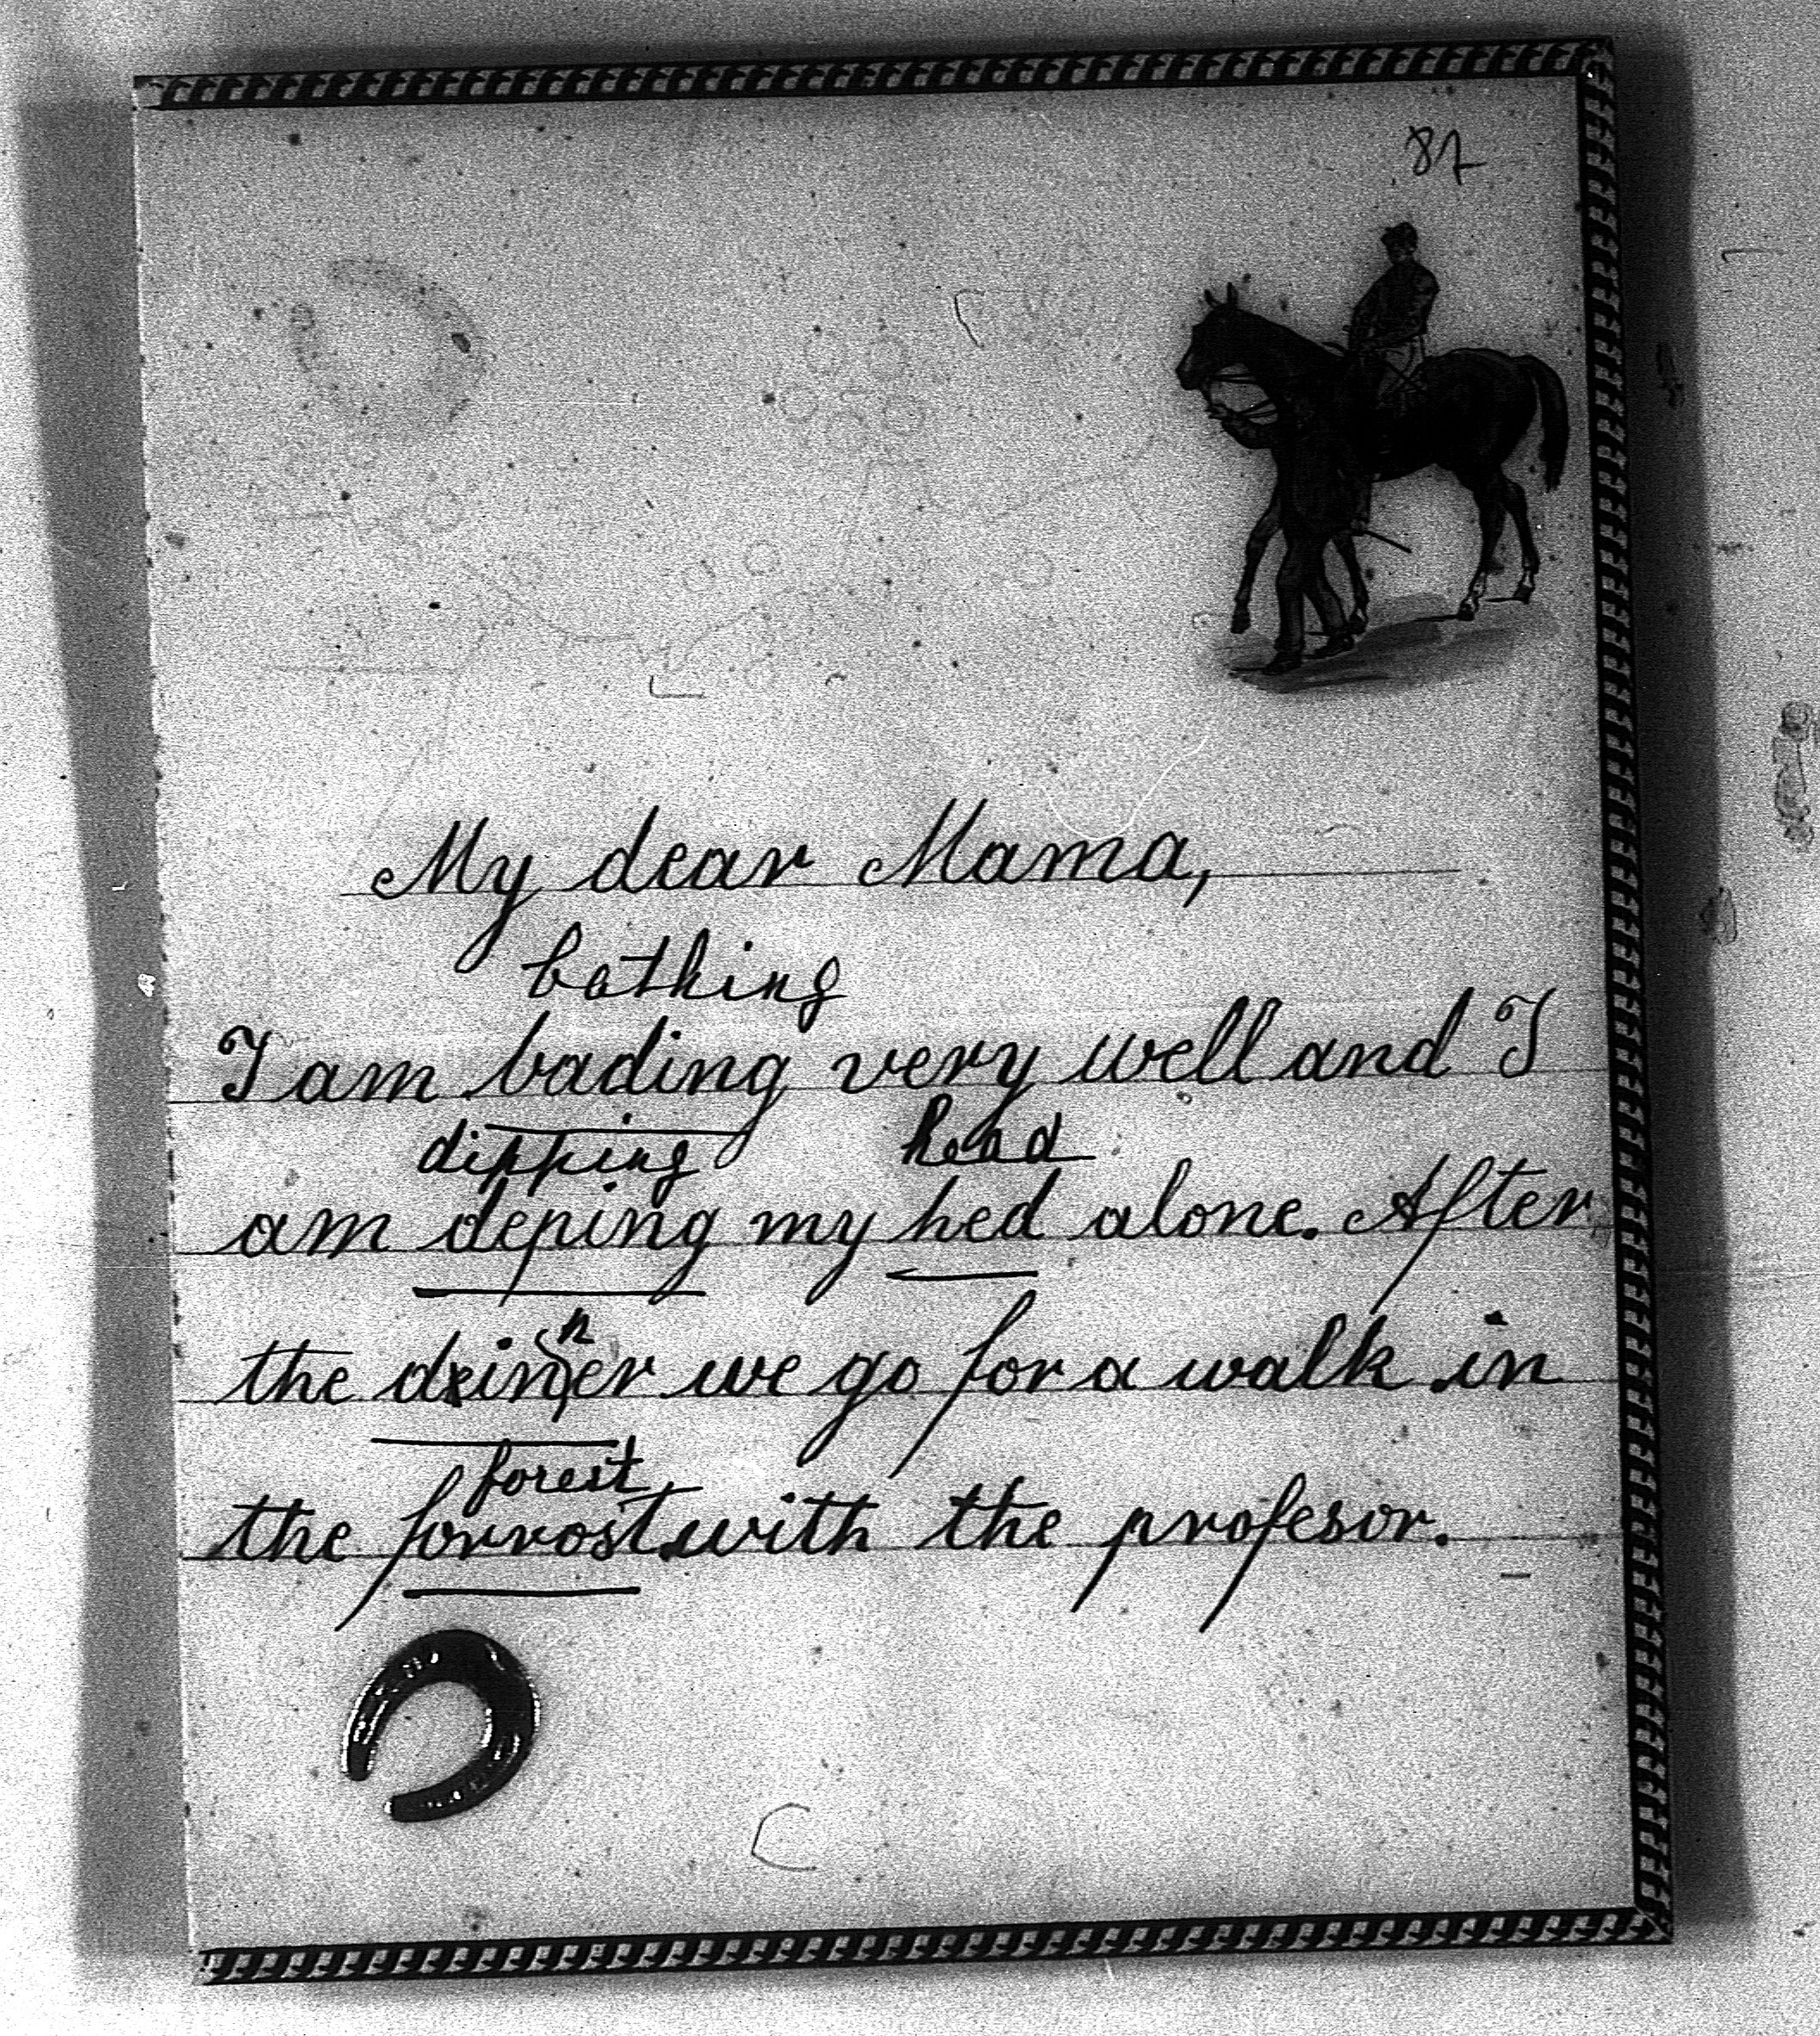 87
My dear Mama,
bathing
I am bading very well and I
dipping head
am deping my hed alone. After
n
the dxiner we go for a walk in
forest
the forrost with the profesor.